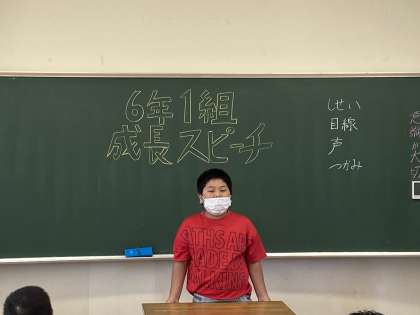 6年1組
成長スピーチ
しせい
目線
声
つかみ